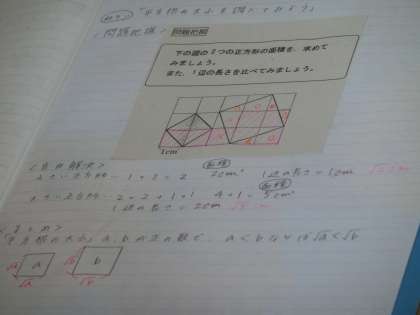 「平方根の大小を調べてみよう」
<問題把握> 問題把握
下の図の2つの正方形の面積を、求めて
みましょう。
また、1辺の長さを比べてみましょう。
1cm
<自力解決>
面積
小さい正方形… 1+1=2 2cm² 1辺の長さ=1cm √2cm
面積
大きい正方形… 2+2+1+1 4+1=5cm²
1辺の長さ=2cm √5cm
<まとめ>
平方根の大小 a,bが正の数で、a<bならば√a<√b
√a a √b b
√a √b